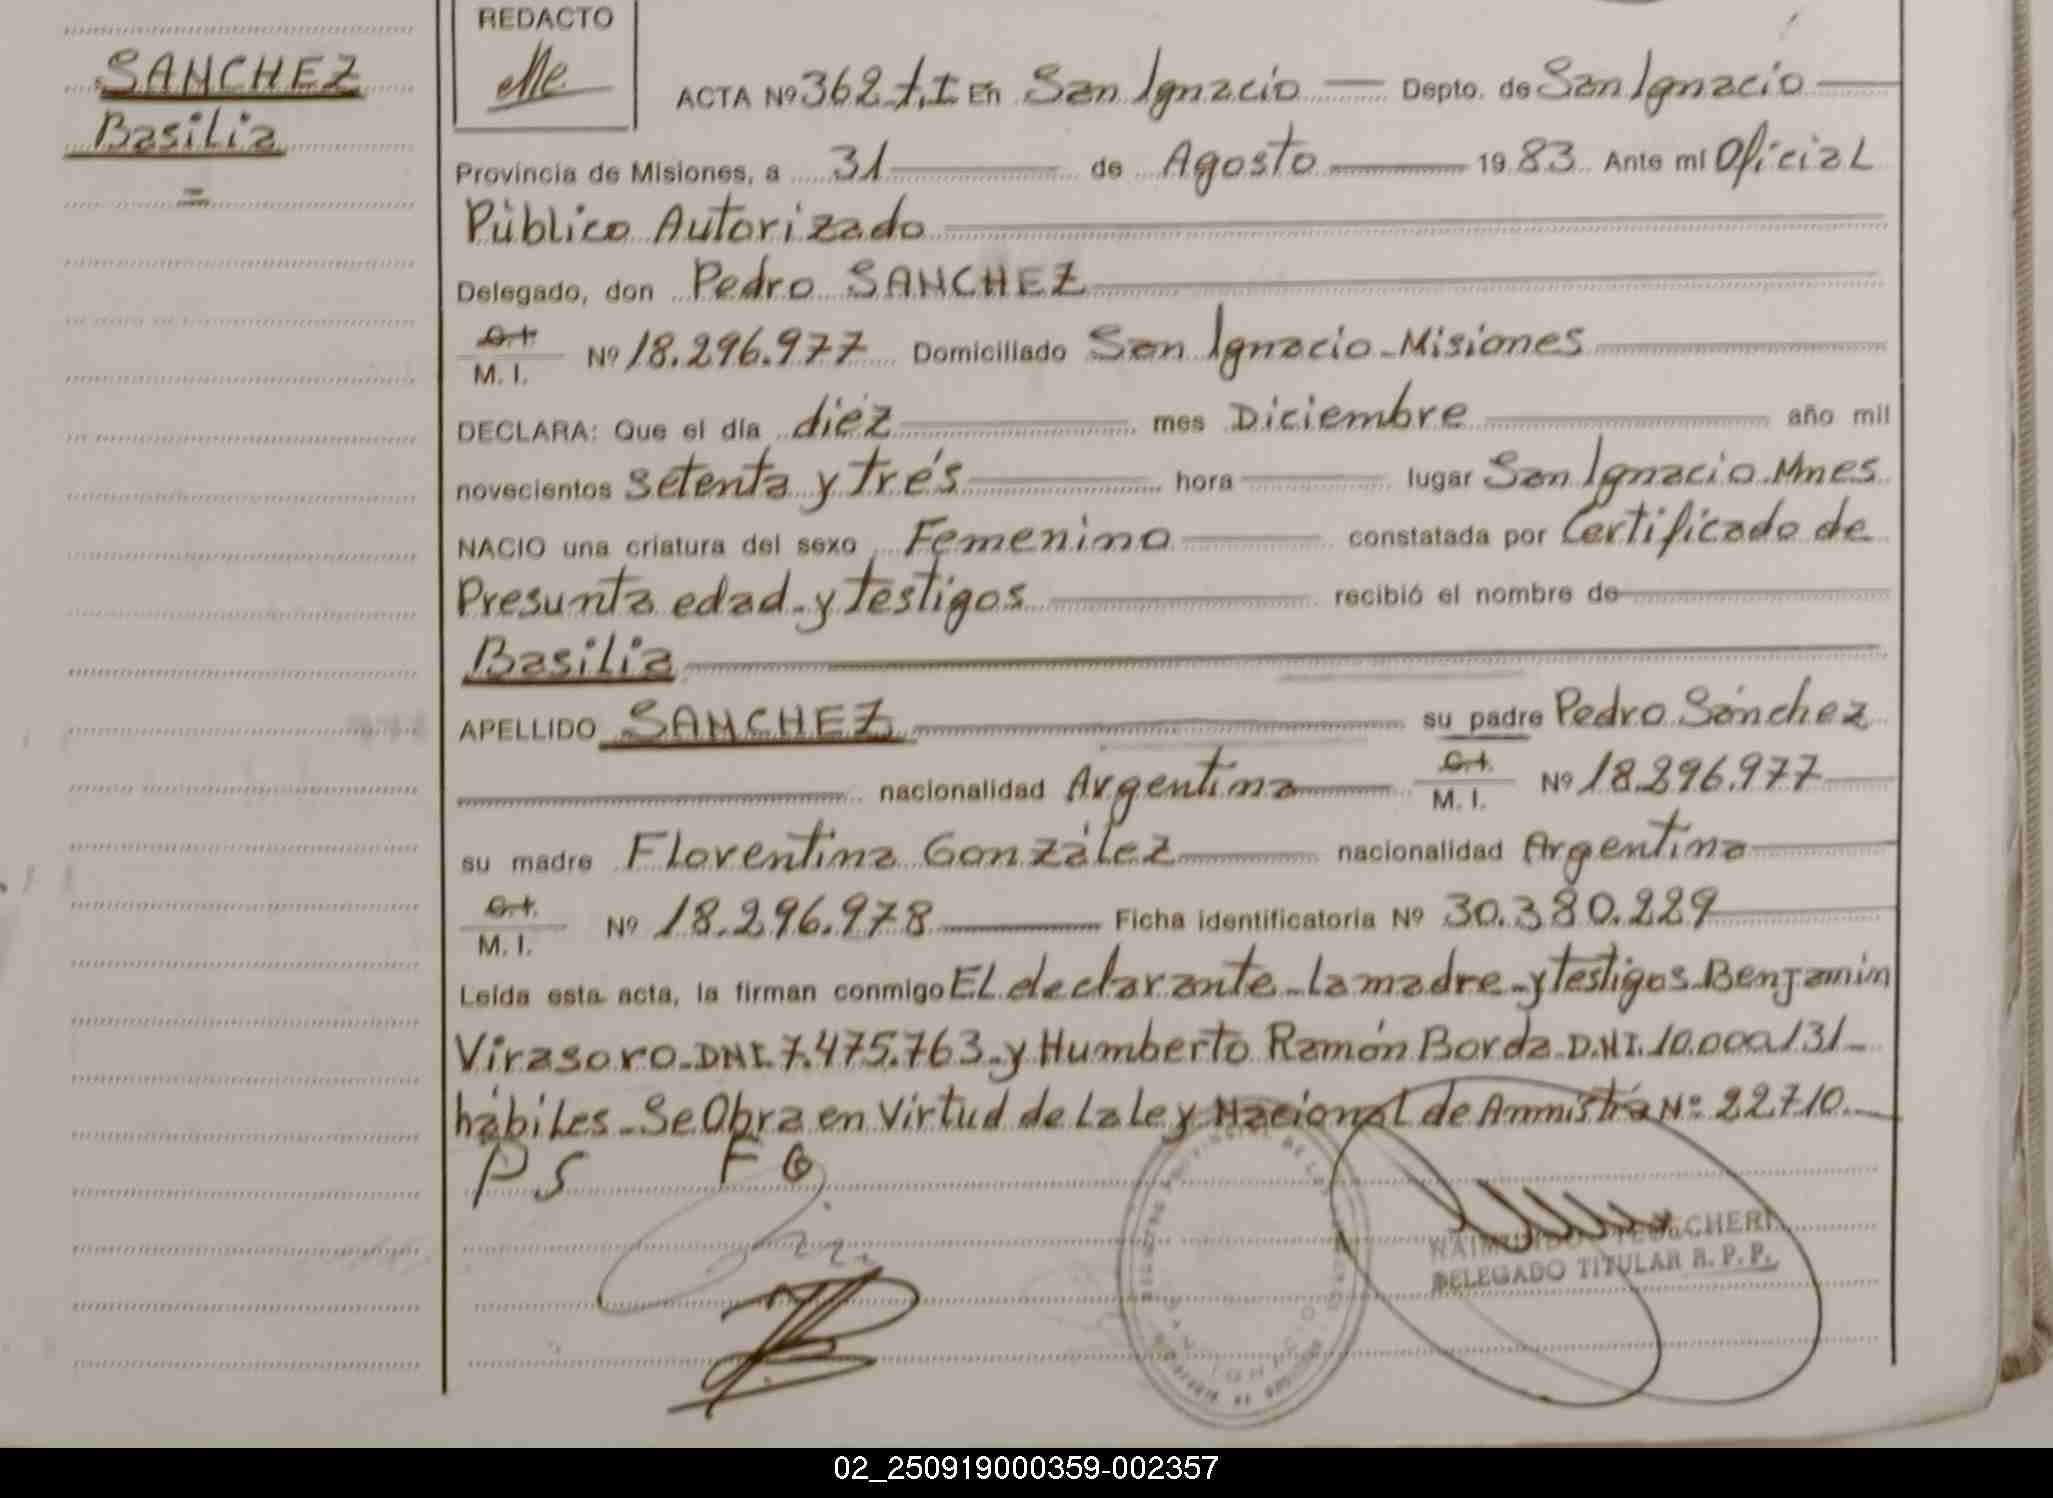 SANCHEZ
Basilia
=
REDACTO
ACTA Nº 362 t.I En San Ignacio Depto. de San Ignacio
Provincia de Misiones, a 31 de Agosto 1983 Ante mi Oficial
Público Autorizado
Delegado, don Pedro SANCHEZ
C.I.
M. I. Nº 18.296.977 Domiciliado San Ignacio - Misiones
DECLARA: Que el día diéz mes Diciembre año mil
novecientos setenta y trés hora lugar San Ignacio. Mnes
NACIO una criatura del sexo Femenino constatada por Certificado de
Presunta edad - y testigos recibió el nombre de
Basilia
APELLIDO SANCHEZ su padre Pedro Sánchez
nacionalidad Argentina C.I. M. I. Nº 18.296.977
su madre Florentina González nacionalidad Argentina
C.I.
M. I. Nº 18.296.978 Ficha identificatoria Nº 30.380.229
Leída esta acta, la firman conmigo El declarante - la madre - y testigos Benjamín
Virasoro - DNI. 7.475.763 - y Humberto Ramón Borda D.N.I. 10.000.131 -
hábiles - Se Obra en Virtud de La Ley Nacional de Amnistía Nº 22710.
P S F G
DELEGADO TITULAR R. P. P.
02_250919000359-002357